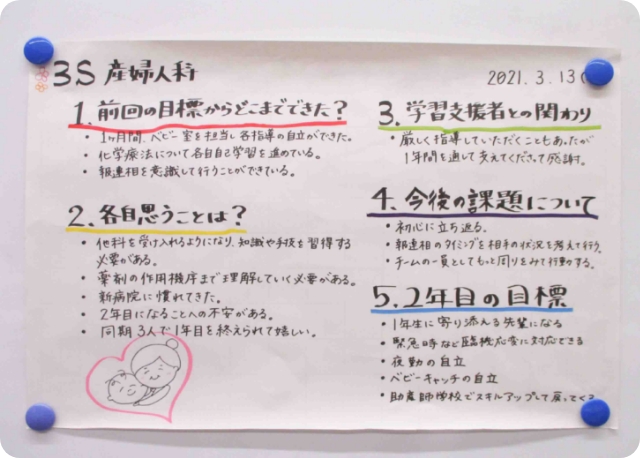 3S 産婦人科
2021.3.13
1. 前回の目標からどこまでできた？
・1ヶ月間、ベビー室を担当し各指導の自立ができた。
・化学療法について各自自己学習を進めている。
・報連相を意識して行うことができている。
2. 各自思うことは？
・他科を受け入れるようになり、知識や手技を習得する
必要がある。
・薬剤の作用機序まで理解していく必要がある。
・新病院に慣れてきた。
・2年目になることへの不安がある。
・同期3人で1年目を終えられて嬉しい。
3. 学習支援者との関わり
・厳しく指導していただくこともあったが
1年間を通して支えてくださって感謝。
4. 今後の課題について
・初心に立ち返る。
・報連相のタイミングを相手の状況を考えて行う。
・チームの一員としてもっと周りをみて行動する。
5. 2年目の目標
・1年生に寄り添える先輩になる
・緊急時など臨機応変に対応できる
・夜勤の自立
・ベビーキャッチの自立
・助産師学校でスキルアップして戻ってくる